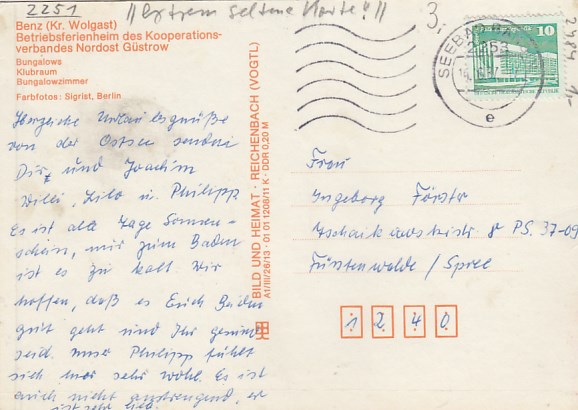 2251
"Extrem seltene Karte!"
3,-
Benz (Kr. Wolgast)
Betriebsferienheim des Kooperations-
verbandes Nordost Güstrow
Bungalows
Klubraum
Bungalowzimmer
Farbfotos: Sigrist, Berlin
Herzliche Urlaubsgrüße
von der Ostsee senden
Dir und Joachim
Willi, Lilo u. Philipp
Es ist alle Tage Sonnen-
schein, nur zum Baden
ist es zu kalt. Wir
hoffen, daß es Euch Beiden
gut geht und Ihr gesund
seid. Unser Philipp fühlt
sich hier sehr wohl. Es ist
auch nicht anstrengend, er
ist sehr lieb.
BILD UND HEIMAT · REICHENBACH (VOGTL)
A1/III/26/13 · 01 01 1208/11 K · DDR 0,20 M
SEEBAD
2253
e
10
2484
1,-
Frau
Ingeborg Förster
8 PS. 37-09
Fürstenwalde / Spree
1 2 4 0